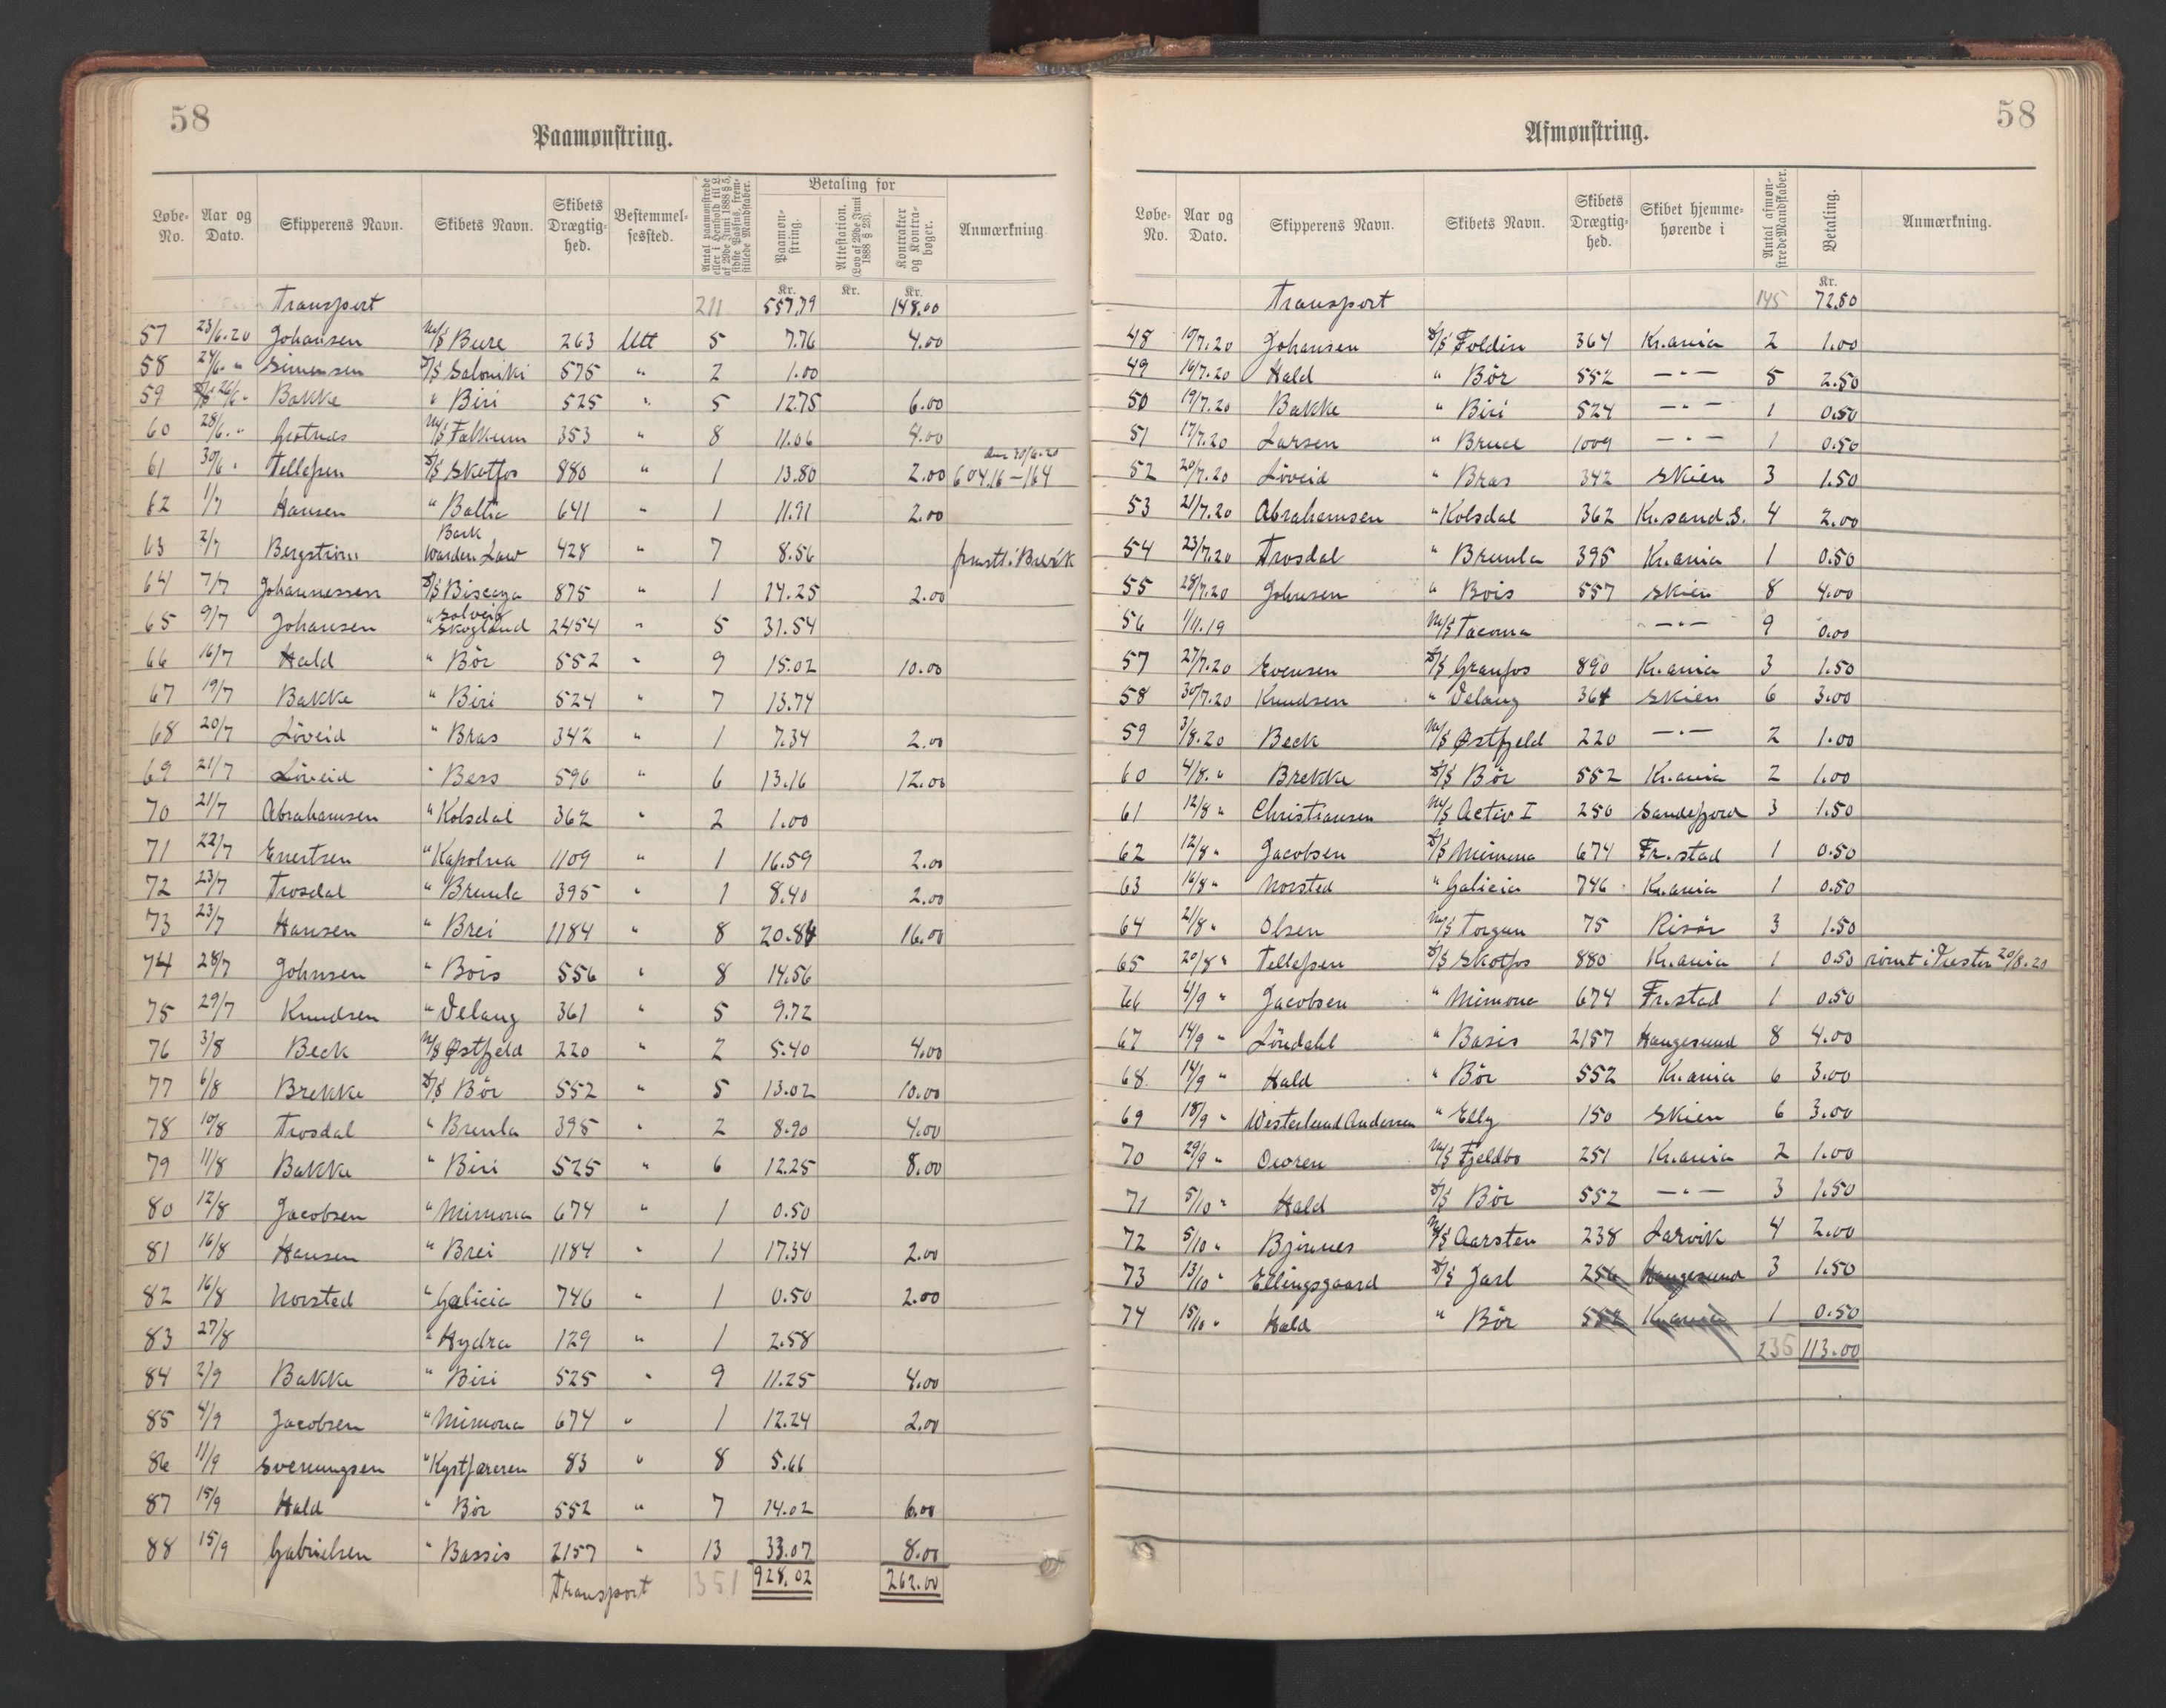 58
Paamønstring.
Løbe-No. | Aar og Dato. | Skipperens Navn. | Skibets Navn. | Skibets Drægtig-hed. | Bestemmel-sessted. | Antal paamønstrede eller i Henhold til L. af 29de Juni 1888 § 5, sidste Passus, frem-stillede Mandskaber. | Betaling for | Paamøn-string. | Attestation. (Lov af 29de Juni 1888 § 23). | Kontrakter og Kontra-bøger. | Anmærkning
Kr. Kr. Kr.
Transport 211 557,79 148.00
57 23/6.20 Johansen M/S Bure 263 Utt 5 7.76 4.00
58 24/6. " Simensen D/S Saloniki 575 " 2 1.00
59 26/6 " Bakke " Biri 525 " 5 12.75 6.00
60 28/6. " Grotnes M/S Falkum 353 " 8 11.06 4.00
61 30/6 " Tellefsen D/S Skotfos 880 " 1 13.80 2.00 30/6.20 604,16 – 164
62 1/7 Hansen " Baltic 641 " 1 11.91 2.00
63 2/7 Bergström Bark Warden Law 428 " 7 8.56
64 7/7 Johannessen D/S Biscaya 875 " 1 14.25 2.00
65 9/7 Johansen " Solveig Skogland 2454 " 5 31.54
66 16/7 Hald " Bör 552 " 9 15.02 10.00
67 19/7 Bakke " Biri 524 " 7 13.74
68 20/7 Löveid " Bras 342 " 1 7.34 2.00
69 21/7 Löveid " Bess 596 " 6 13.16 12.00
70 21/7 Abrahamsen " Kolsdal 362 " 2 1.00
71 22/7 Evertsen " Kapolna 1109 " 1 16.59 2.00
72 23/7 Trosdal " Brumla 395 " 1 8.40 2.00
73 23/7 Hansen " Brei 1184 " 8 20.84 16.00
74 28/7 Johnsen " Bois 556 " 8 14.56
75 29/7 Knudsen " Velang 361 " 5 9.72
76 3/8 Beck M/S Østfjeld 220 " 2 5.40 4.00
77 6/8 Brekke D/S Bör 552 " 5 13.02 10.00
78 10/8 Trosdal " Brumla 395 " 2 8.90 4.00
79 11/8 Bakke " Biri 525 " 6 12.25 8.00
80 12/8 Jacobsen " Mimona 674 " 1 0.50
81 16/8 Hansen " Brei 1184 " 1 17.34 2.00
82 16/8 Norsted " Galicia 746 " 1 0.50 2.00
83 27/8 " Hydra 129 " 1 2.58
84 2/9 Bakke " Biri 525 " 9 11.25 4.00
85 4/9 Jacobsen " Mimona 674 " 1 12.24 2.00
86 11/9 Svenungsen " Kystfareren 83 " 8 5.66
87 15/9 Hald " Bör 552 " 7 14.02 6.00
88 15/9 Gabrielsen " Bassis 2157 " 13 33.07 8.00
Transport 351 928.02 262.00
58
Afmønstring.
Løbe-No. | Aar og Dato. | Skipperens Navn. | Skibets Navn. | Skibets Drægtig-hed. | Skibet hjemme-hørende i | Antal afmøn-strede Mandskaber. | Betaling. | Anmærkning.
Kr.
Transport 145 72.50
48 10/7.20 Johansen D/S Foldin 364 Kr.ania 2 1.00
49 16/7.20 Hald " Bör 552 — " — 5 2.50
50 19/7.20 Bakke " Biri 524 — " — 1 0.50
51 17/7.20 Larsen " Bruce 1009 — " — 1 0.50
52 20/7.20 Löveid " Bras 342 Skien 3 1.50
53 21/7.20 Abrahamsen " Kolsdal 362 Kr.sand.S. 4 2.00
54 23/7.20 Trosdal " Brumla 395 Kr.ania 1 0.50
55 28/7.20 Johnsen " Bois 557 Skien 8 4.00
56 1/11.19 M/S Tacoma — " — 9 0.00
57 27/7.20 Evensen D/S Granfos 890 Kr.ania 3 1.50
58 30/7.20 Knudsen " Velang 361 Skien 6 3.00
59 3/8.20 Beck M/S Østfjeld 220 — " — 2 1.00
60 4/8. " Brekke D/S Bör 552 Kr.ania 2 1.00
61 12/8 " Christiansen M/S Activ I 250 Sandefjord 3 1.50
62 12/8 " Jacobsen D/S Mimona 674 Fr.stad 1 0.50
63 16/8 " Norsted " Galicia 746 Kr.ania 1 0.50
64 21/8 " Olsen M/S Torgun 75 Risör 3 1.50
65 20/8 " Tellefsen D/S Skotfos 880 Kr.ania 1 0.50 römt i 20/8.20
66 4/9 " Jacobsen " Mimona 674 Fr.stad 1 0.50
67 14/9 " Löndahl " Basis 2157 Haugesund 8 4.00
68 14/9 " Hald " Bör 552 Kr.ania 6 3.00
69 18/9 " Westerlund Andersen " Elly 150 Skien 6 3.00
70 29/9 " M/S Fjeldbo 251 Kr.ania 2 1.00
71 5/10 " Hald D/S Bör 552 — " — 3 1.50
72 5/10 " Bjönnes M/S Aarsten 238 Larvik 4 2.00
73 13/10 " Ellingsgaard D/S Jarl 256 Haugesund 3 1.50
74 15/10 " Hald " Bör 552 Kr.ania 1 0.50
235 113.00